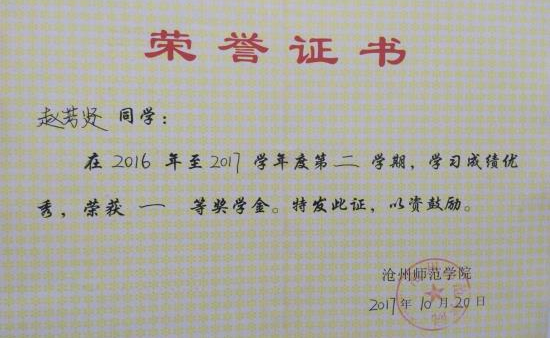 荣誉证书
赵芳贤 同学：
在 2016 年至 2017 学年度第 二 学期，学习成绩优
秀，荣获 一 等奖学金。特发此证，以资鼓励。
沧州师范学院
2017年 10月 20日